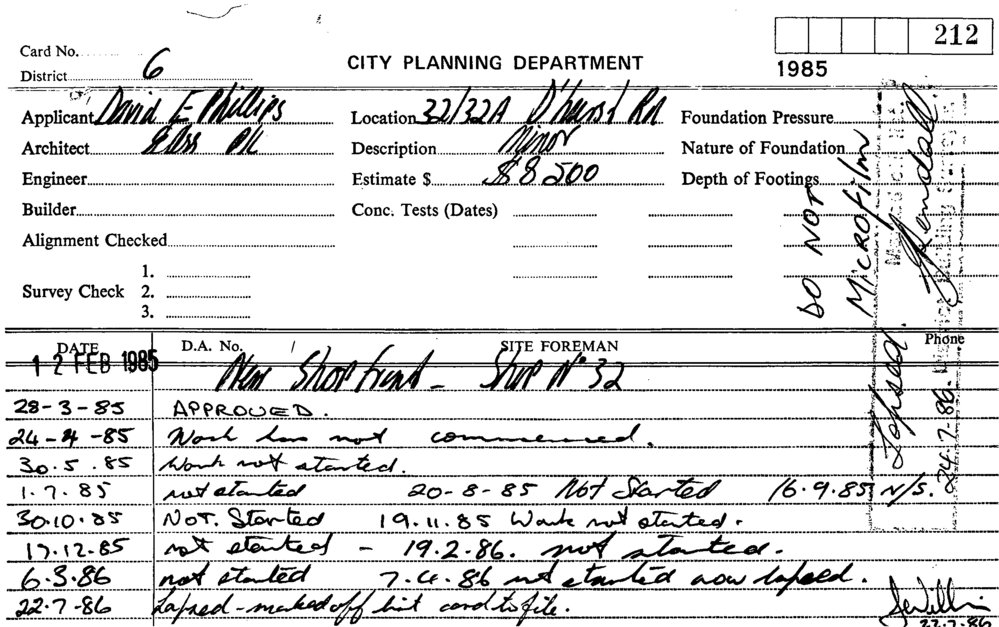 212
Card No.
District 6
CITY PLANNING DEPARTMENT
1985
Applicant David E Phillips
Location 32/32A D'hurst Rd
Foundation Pressure
Architect
Description Minor
Nature of Foundation
Engineer
Estimate $ $8 500
Depth of Footings
Builder
Conc. Tests (Dates)
Alignment Checked
Survey Check
1.
2.
3.
DO NOT
MICROFILM
Lapsed.
24-7-86.
DATE
D.A. No.
SITE FOREMAN
Phone
12 FEB 1985
New Shop front - Shop No 32
28-3-85 APPROVED.
24-4-85 Work has not commenced.
30.5.85 Work not started.
1.7.85 not started 20-8-85 Not Started 16.9.85 N/S.
30.10.85 NOT. Started 19.11.85 Work not started.
17.12.85 not started - 19.2.86. not started.
6.3.86 not started 7.4.86 not started now lapsed.
22.7-86 Lapsed - marked off list card to file.
22.7.86